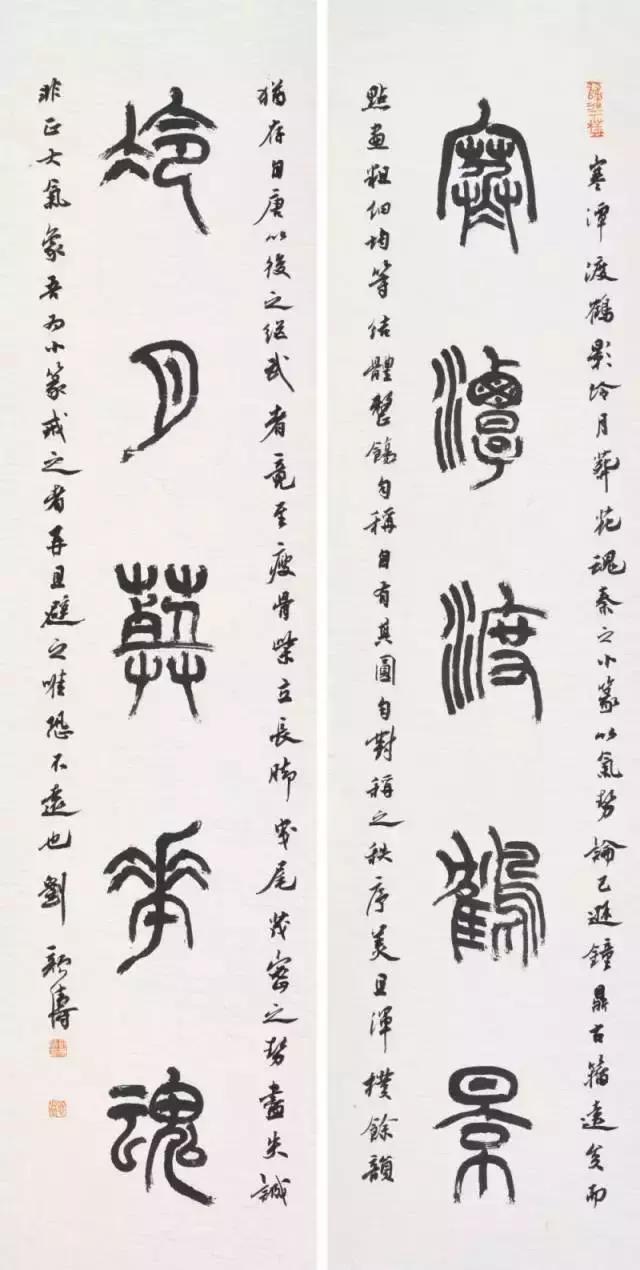 寒潭渡鶴影冷月葬花魂秦之小篆以氣勢論已遜鐘鼎古籀遠矣而
寒潭渡鶴景
點畫粗細均等結體整飭勻稱自有其圓勻對稱之秩序美且渾樸餘韻
猶存自唐以後之繼武者竟至瘦骨柴立長腳曳尾茂密之勢盡失誠
冷月葬華魂
非正大氣象吾為小篆戒之者再且避之唯恐不遠也劉顏濤